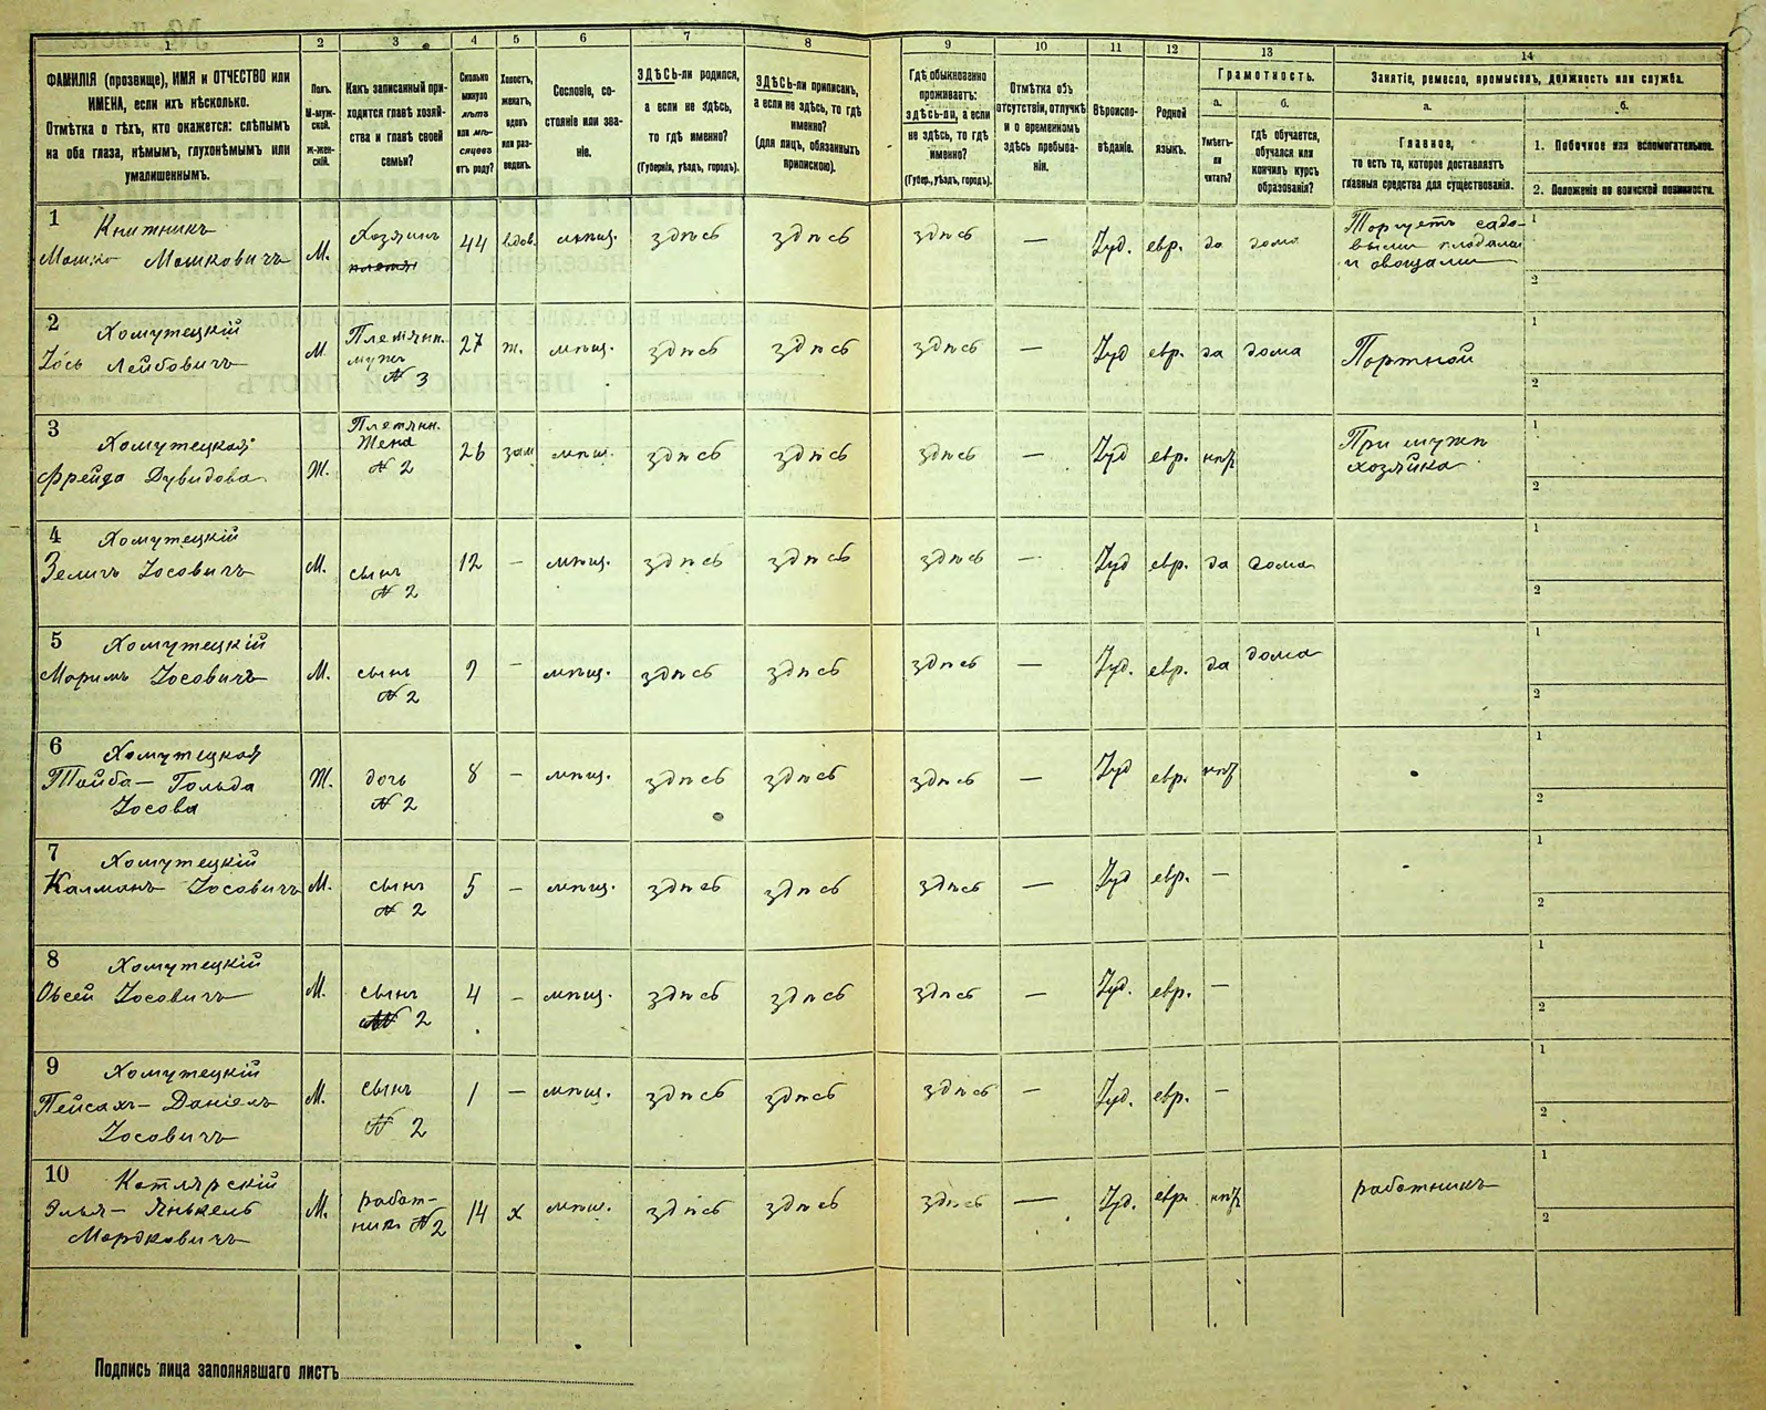 5
1
2
3
4
5
6
7
8
9
10
11
12
13
14
ФАМИЛІЯ (прозвище), ИМЯ и ОТЧЕСТВО или
ИМЕНА, если ихъ нѣсколько.
Отмѣтка о тѣхъ, кто окажется: слѣпымъ
на оба глаза, нѣмымъ, глухонѣмымъ или
умалишеннымъ.
Полъ.
М-муж-
ской.
ж-жен-
скій.
Какъ записанный при-
ходится главѣ хозяй-
ства и главѣ своей
семьи?
Сколько
минуло
лѣтъ
или мѣ-
сяцевъ
отъ роду?
Холостъ,
женатъ,
вдовъ
или раз-
веденъ.
Сословіе, со-
стояніе или зва-
ніе.
ЗДѢСЬ-ли родился,
а если не здѣсь,
то гдѣ именно?
(Губернія, уѣздъ, городъ).
ЗДѢСЬ-ли приписанъ,
а если не здѣсь, то гдѣ
именно?
(для лицъ, обязанныхъ
припискою).
Гдѣ обыкновенно
проживаетъ:
здѣсь-ли, а если
не здѣсь, то гдѣ
именно?
(Губер., уѣздъ, городъ).
Отмѣтка объ
отсутствіи, отлучкѣ
и о временномъ
здѣсь пребыва-
ніи.
Вѣроиспо-
вѣданіе.
Родной
языкъ.
Грамотность.
а.
Умѣетъ-
ли
читать?
б.
гдѣ обучается,
обучался или
кончилъ курсъ
образованія?
Занятіе, ремесло, промыселъ, должность или служба.
а.
Главное,
то есть то, которое доставляетъ
главныя средства для существованія.
б.
1. Побочное или вспомогательное.
2. Положеніе по воинской повинности.
1 Книжникъ
Мошко Мошковичъ М. Хозяинъ 44 вдов. мѣщ. здѣсь здѣсь здѣсь — Іуд. евр. да дома Торгуетъ садо-
выми плодами
и овощами
1
2
2 Хомутецкій
Іось Лейбовичъ М Племянн.
мужъ
№ 3 27 ж. мѣщ. здѣсь здѣсь здѣсь — Іуд евр. да дома Портной
1
2
3 Хомутецкая
Фрейда Дувидова Ж. Племянн.
Жена
№ 2 26 зам мѣщ. здѣсь здѣсь здѣсь — Іуд евр. нѣт При мужѣ
хозяйка
1
2
4 Хомутецкій
Зеликъ Іосовичъ М. сынъ
№ 2 12 — мѣщ. здѣсь здѣсь здѣсь — Іуд евр. да дома
1
2
5 Хомутецкій
Іосовичъ М. сынъ
№ 2 9 — мѣщ. здѣсь здѣсь здѣсь — Іуд. евр. да дома
1
2
6 Хомутецкая
Тайба-Гольда
Іосова Ж. дочь
№ 2 8 — мѣщ. здѣсь здѣсь здѣсь — Іуд евр. нѣт
1
2
7 Хомутецкій
Калманъ Іосовичъ М. сынъ
№ 2 5 — мѣщ. здѣсь здѣсь здѣсь — Іуд евр. —
1
2
8 Хомутецкій
Овсей Іосовичъ М. сынъ
№ 2 4 — мѣщ. здѣсь здѣсь здѣсь — Іуд. евр. —
1
2
9 Хомутецкій
Пейсахъ-Даніелъ
Іосовичъ М. сынъ
№ 2 1 — мѣщ. здѣсь здѣсь здѣсь — Іуд. евр. —
1
2
10 Котлярскій
Элья-Янькель
Мордковичъ М. работ-
никъ № 2 14 х мѣщ. здѣсь здѣсь здѣсь — Іуд. евр. нѣт работникъ
1
2
Подпись лица заполнявшаго листъ